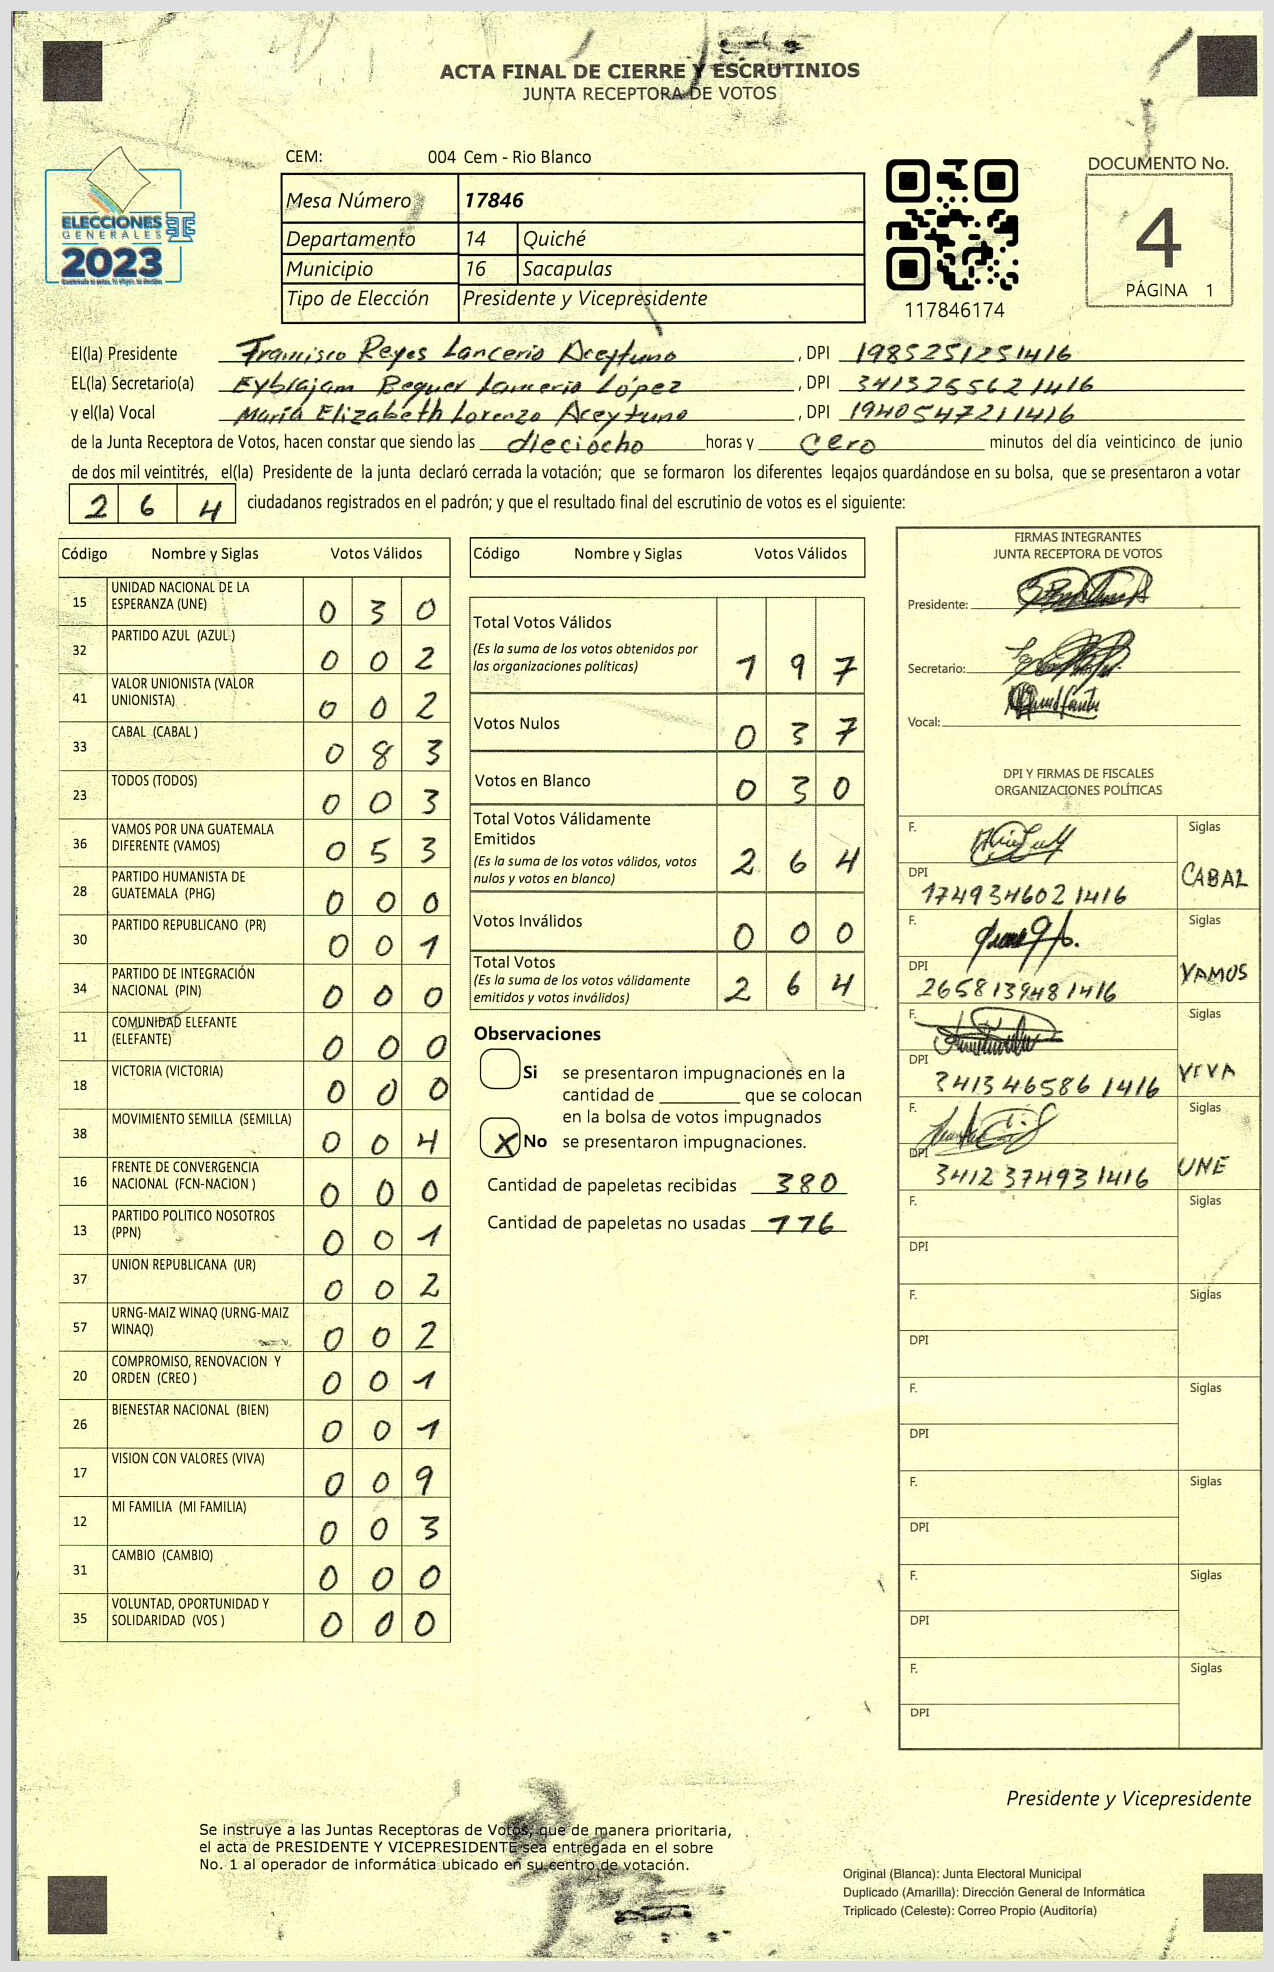 ACTA FINAL DE CIERRE Y ESCRUTINIOS
JUNTA RECEPTORA DE VOTOS
ELECCIONES
GENERALES
2023
CEM: 004 Cem - Rio Blanco
Mesa Número 17846
Departamento 14 Quiché
Municipio 16 Sacapulas
Tipo de Elección Presidente y Vicepresidente
117846174
DOCUMENTO No.
4
PÁGINA 1
El(la) Presidente Francisco Reyes Lancerio Aceytuno, DPI 1985251251416
EL(la) Secretario(a) Eybrajam Bequer Lancerio López, DPI 3413255621416
y el(la) Vocal María Elizabeth Lorenzo Aceytuno, DPI 1940547211416
de la Junta Receptora de Votos, hacen constar que siendo las dieciocho horas y cero minutos del día veinticinco de junio
de dos mil veintitrés, el(la) Presidente de la junta declaró cerrada la votación; que se formaron los diferentes legajos guardándose en su bolsa, que se presentaron a votar
2 6 4 ciudadanos registrados en el padrón; y que el resultado final del escrutinio de votos es el siguiente:
Código Nombre y Siglas Votos Válidos
15 UNIDAD NACIONAL DE LA
ESPERANZA (UNE) 0 3 0
32 PARTIDO AZUL (AZUL) 0 0 2
41 VALOR UNIONISTA (VALOR
UNIONISTA) 0 0 2
33 CABAL (CABAL ) 0 8 3
23 TODOS (TODOS) 0 0 3
36 VAMOS POR UNA GUATEMALA
DIFERENTE (VAMOS) 0 5 3
28 PARTIDO HUMANISTA DE
GUATEMALA (PHG) 0 0 0
30 PARTIDO REPUBLICANO (PR) 0 0 1
34 PARTIDO DE INTEGRACIÓN
NACIONAL (PIN) 0 0 0
11 COMUNIDAD ELEFANTE
(ELEFANTE) 0 0 0
18 VICTORIA (VICTORIA) 0 0 0
38 MOVIMIENTO SEMILLA (SEMILLA) 0 0 4
16 FRENTE DE CONVERGENCIA
NACIONAL (FCN-NACION ) 0 0 0
13 PARTIDO POLITICO NOSOTROS
(PPN) 0 0 1
37 UNION REPUBLICANA (UR) 0 0 2
57 URNG-MAIZ WINAQ (URNG-MAIZ
WINAQ) 0 0 2
20 COMPROMISO, RENOVACION Y
ORDEN (CREO ) 0 0 1
26 BIENESTAR NACIONAL (BIEN) 0 0 1
17 VISION CON VALORES (VIVA) 0 0 9
12 MI FAMILIA (MI FAMILIA) 0 0 3
31 CAMBIO (CAMBIO) 0 0 0
35 VOLUNTAD, OPORTUNIDAD Y
SOLIDARIDAD (VOS ) 0 0 0
Código Nombre y Siglas Votos Válidos
Total Votos Válidos
(Es la suma de los votos obtenidos por
las organizaciones políticas) 1 9 7
Votos Nulos 0 3 7
Votos en Blanco 0 3 0
Total Votos Válidamente
Emitidos
(Es la suma de los votos válidos, votos
nulos y votos en blanco) 2 6 4
Votos Inválidos 0 0 0
Total Votos
(Es la suma de los votos válidamente
emitidos y votos inválidos) 2 6 4
Observaciones
Si se presentaron impugnaciones en la
cantidad de ________ que se colocan
en la bolsa de votos impugnados
X No se presentaron impugnaciones.
Cantidad de papeletas recibidas 380
Cantidad de papeletas no usadas 116
FIRMAS INTEGRANTES
JUNTA RECEPTORA DE VOTOS
Presidente:
Secretario:
Vocal:
DPI Y FIRMAS DE FISCALES
ORGANIZACIONES POLÍTICAS
F. Siglas
DPI CABAL
174934602 1416
F. Siglas
DPI VAMOS
265813948 1416
F. Siglas
DPI VIVA
341346586 1416
F. Siglas
DPI UNE
3412374931416
F. Siglas
DPI
F. Siglas
DPI
F. Siglas
DPI
F. Siglas
DPI
F. Siglas
DPI
F. Siglas
DPI
Presidente y Vicepresidente
Se instruye a las Juntas Receptoras de Votos, que de manera prioritaria,
el acta de PRESIDENTE Y VICEPRESIDENTE sea entregada en el sobre
No. 1 al operador de informática ubicado en su centro de votación.
Original (Blanca): Junta Electoral Municipal
Duplicado (Amarilla): Dirección General de Informática
Triplicado (Celeste): Correo Propio (Auditoría)